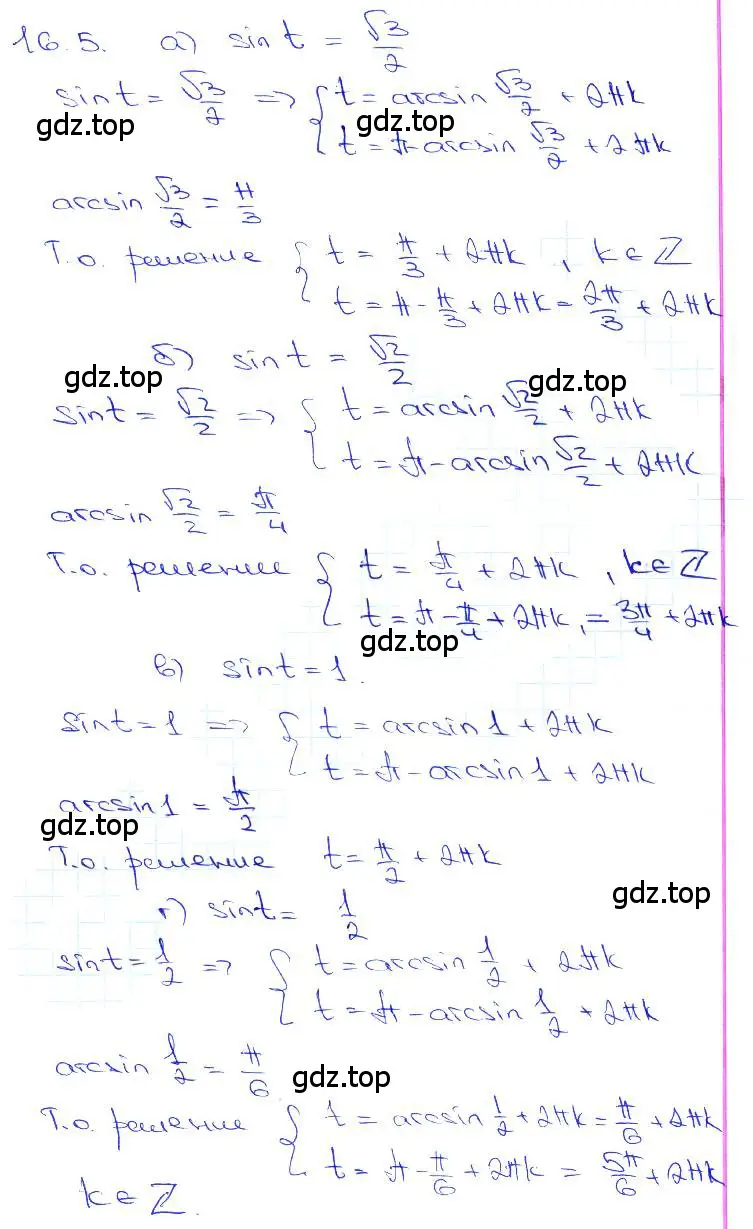 16.5. а) sin t = √3/2
sin t = √3/2 => { t = arcsin √3/2 + 2πk
gdz.top gdz.top
t = π - arcsin √3/2 + 2πk
arcsin √3/2 = π/3
Т.о. решение { t = π/3 + 2πk , k ∈ ℤ
t = π - π/3 + 2πk = 2π/3 + 2πk
б) sin t = √2/2
gdz.top gdz.top
sin t = √2/2 => { t = arcsin √2/2 + 2πk
t = π - arcsin √2/2 + 2πk
arcsin √2/2 = π/4
Т.о. решение { t = π/4 + 2πk , k ∈ ℤ
t = π - π/4 + 2πk, = 3π/4 + 2πk
gdz.top
в) sin t = 1.
sin t = 1 => { t = arcsin 1 + 2πk
t = π - arcsin 1 + 2πk
arcsin 1 = π/2
gdz.top
Т.о. решение t = π/2 + 2πk
gdz.top
г) sin t = 1/2
sin t = 1/2 => { t = arcsin 1/2 + 2πk
t = π - arcsin 1/2 + 2πk
arcsin 1/2 = π/6
gdz.top
Т.о. решение { t = arcsin 1/2 + 2πk = π/6 + 2πk
t = π - π/6 + 2πk = 5π/6 + 2πk
k ∈ ℤ.